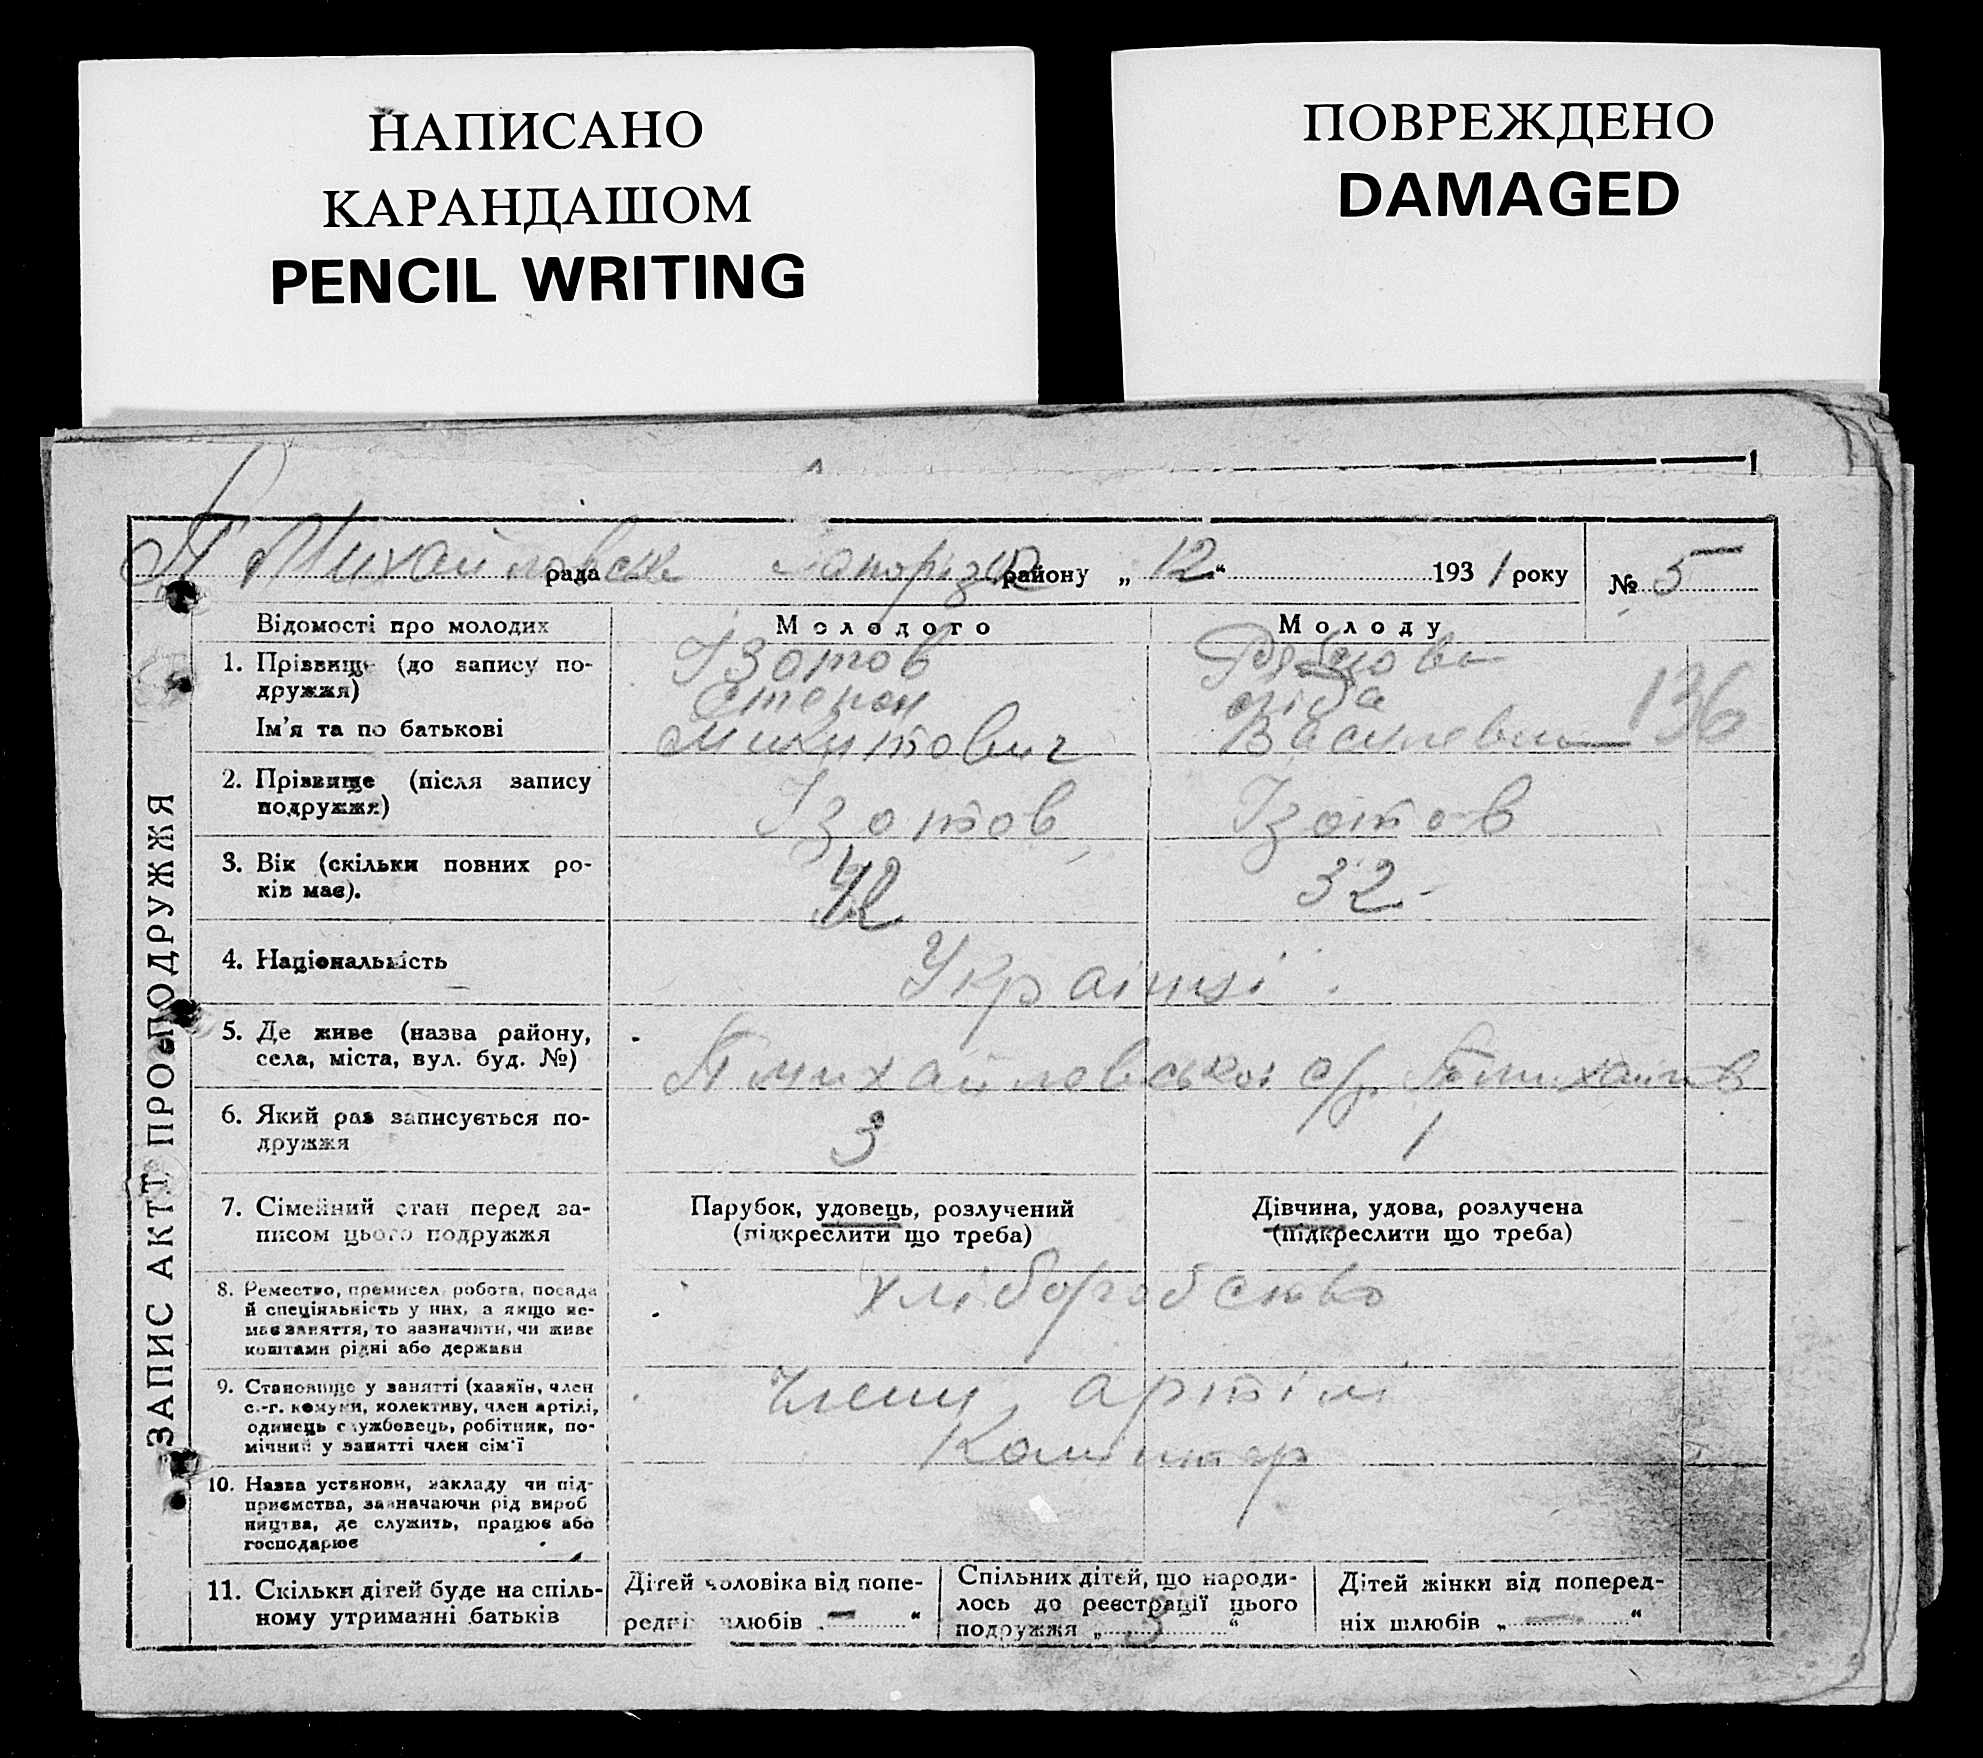 НАПИСАНО
КАРАНДАШОМ
PENCIL WRITING
ПОВРЕЖДЕНО
DAMAGED
П Михайловск рада Запорізьк району „ 12 “ 1931 року № 5
ЗАПИС АКТУ ПРО ПОДРУЖЖЯ
Відомості про молодих Молодого Молоду
1. Прізвище (до запису подружжя) Ізотов
Ім'я та по батькові Степан
Микитович
136
2. Прізвище (після запису
подружжя) Ізотов Ізотов
3. Вік (скільки повних ро-
ків має). 42 32
4. Національність Українці
5. Де живе (назва району,
села, міста, вул. буд. №) П Михайловської с/р.
6. Який раз записується по-
дружжя 3 1
7. Сімейний стан перед за-
писом цього подружжя
Парубок, удовець, розлучений
(підкреслити що треба)
Дівчина, удова, розлучена
(підкреслити що треба)
8. Ремество, промисел, робота, посада
й спеціяльність у них, а якщо не-
має заняття, то зазначити, чи живе
коштами рідні або держави
хліборобство
9. Становище у занятті (хазяїн, член
с.-г. комуни, колективу, член артілі,
одинець службовець, робітник, по-
мічний у занятті член сім'ї
Члени артіли
10. Назва установи, закладу чи під-
приємства, зазначаючи рід вироб
ництва, де служить, працює або
господарює
Комінтер
11. Скільки дітей буде на спіль-
ному утриманні батьків
Дітей чоловіка від попе-
редніх шлюбів „ — “
Спільних дітей, що народи-
лось до реєстрації цього
подружжя „ 3 “
Дітей жінки від поперед-
ніх шлюбів „ — “